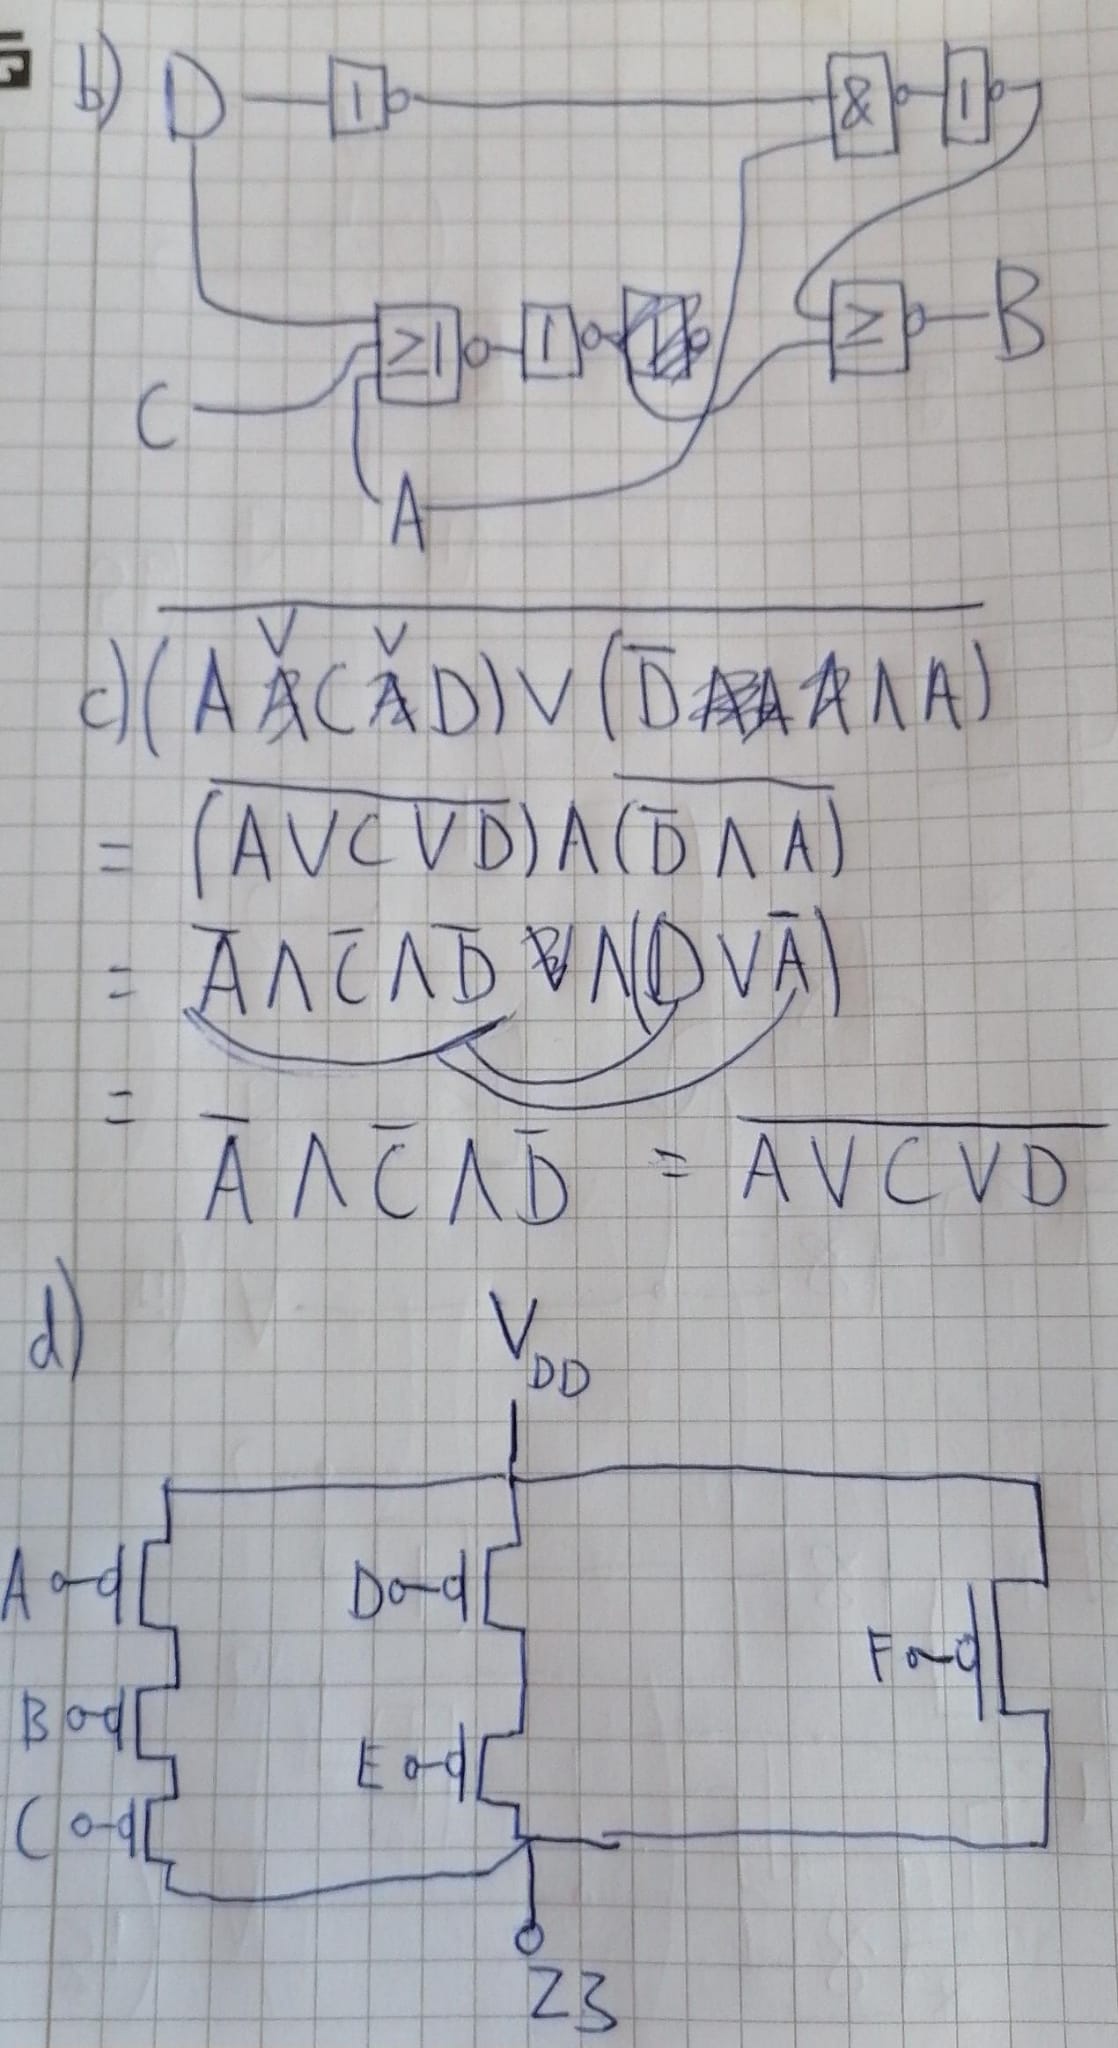 b) D 1 & 1
≥1 1 ≥ B
C
A
c) (A ∨ C ∨ D) ∨ (D̅ ∧ A)
= (A ∨ C ∨ D) ∧ (D̅ ∧ A)
= A̅ ∧ C̅ ∧ D̅ ∧ (D ∨ A̅)
=
A̅ ∧ C̅ ∧ D̅ = A ∨ C ∨ D
d)
V DD
A D
F
B
E
C
Z3